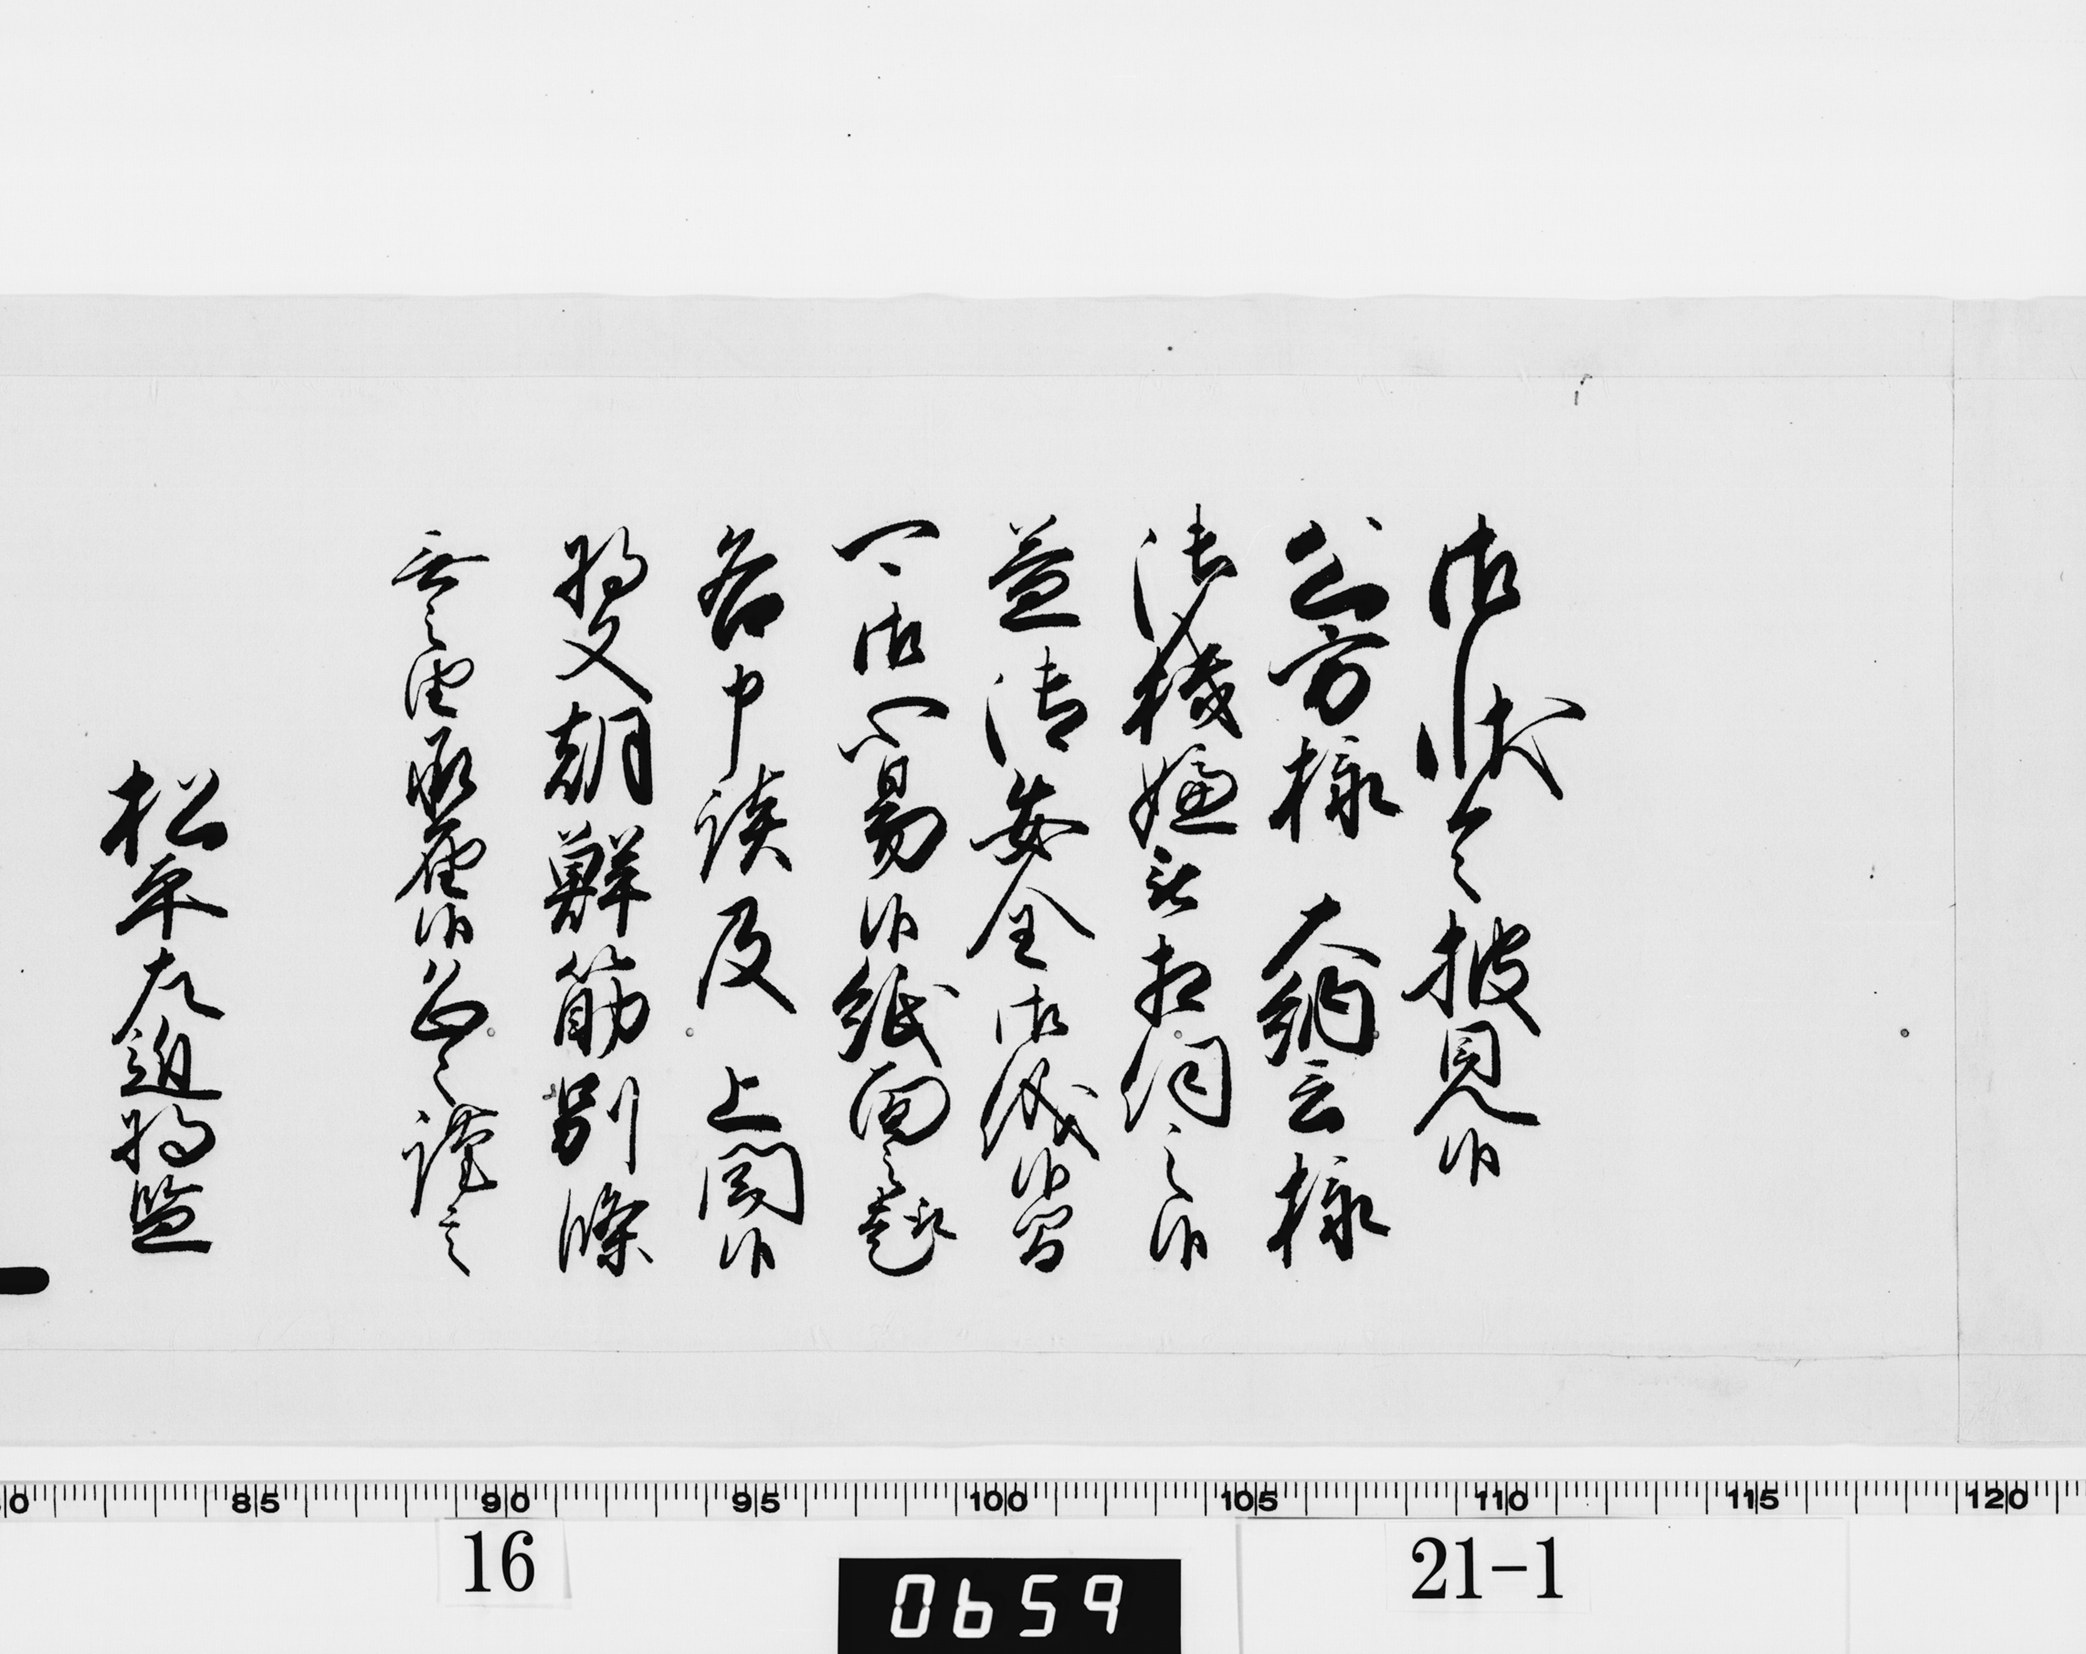 御状令披見候
公方様大納言様
御機嫌被相伺之候
益御安全御儀候間
可御心易候紙面之趣
各申談及上聞候
将又朝鮮筋別條
無之由承届候恐々謹言
松平左近将監
80 85 90 95 100 105 110 115 120
16
0659
21-1